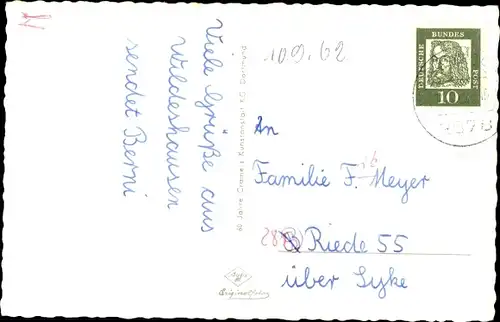 Viele Grüße aus
Wildeshausen
sendet Berni
10 9. 62
DEUTSCHE BUNDES POST
10
An
Familie F. Meyer
Riede 55
über Syke
60 Jahre Cramers Kunstanstalt KG Dortmund